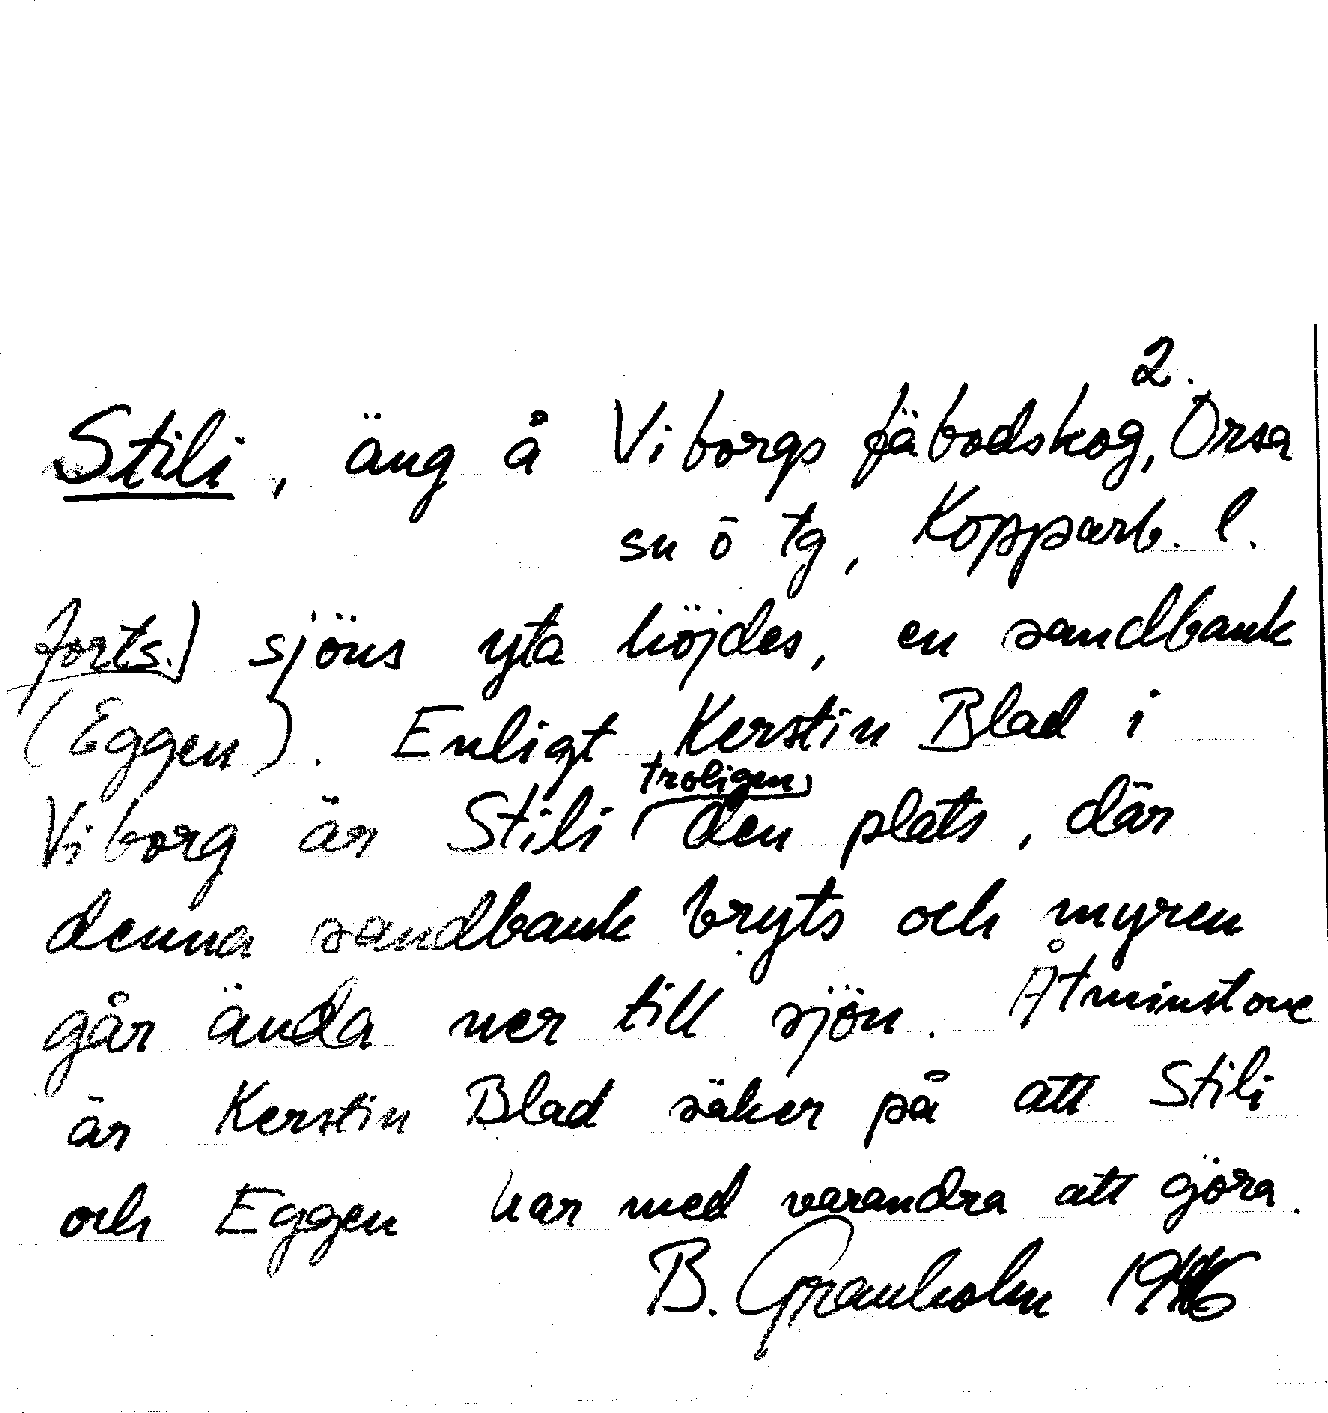 2.
Stili, äng å Viborgs fäbodskog, Orsa
sn ö tg, Kopparb. l.
forts.) sjöns yta höjdes, en sandbank
(Eggen). Enligt Kerstin Blad i
troligen
Viborg är Stili den plats, där
denna sandbank bryts och myren
går ända ner till sjön. Åtminstone
är Kerstin Blad säker på att Stili
och Eggen har med varandra att göra.
B. Granholm